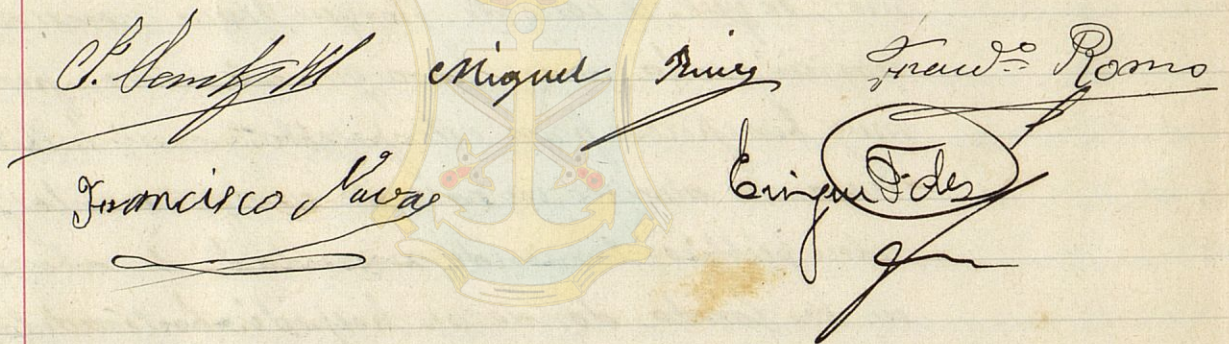 Miguel Ruiz Francº Romo
Francisco Navas Enrique Fdez